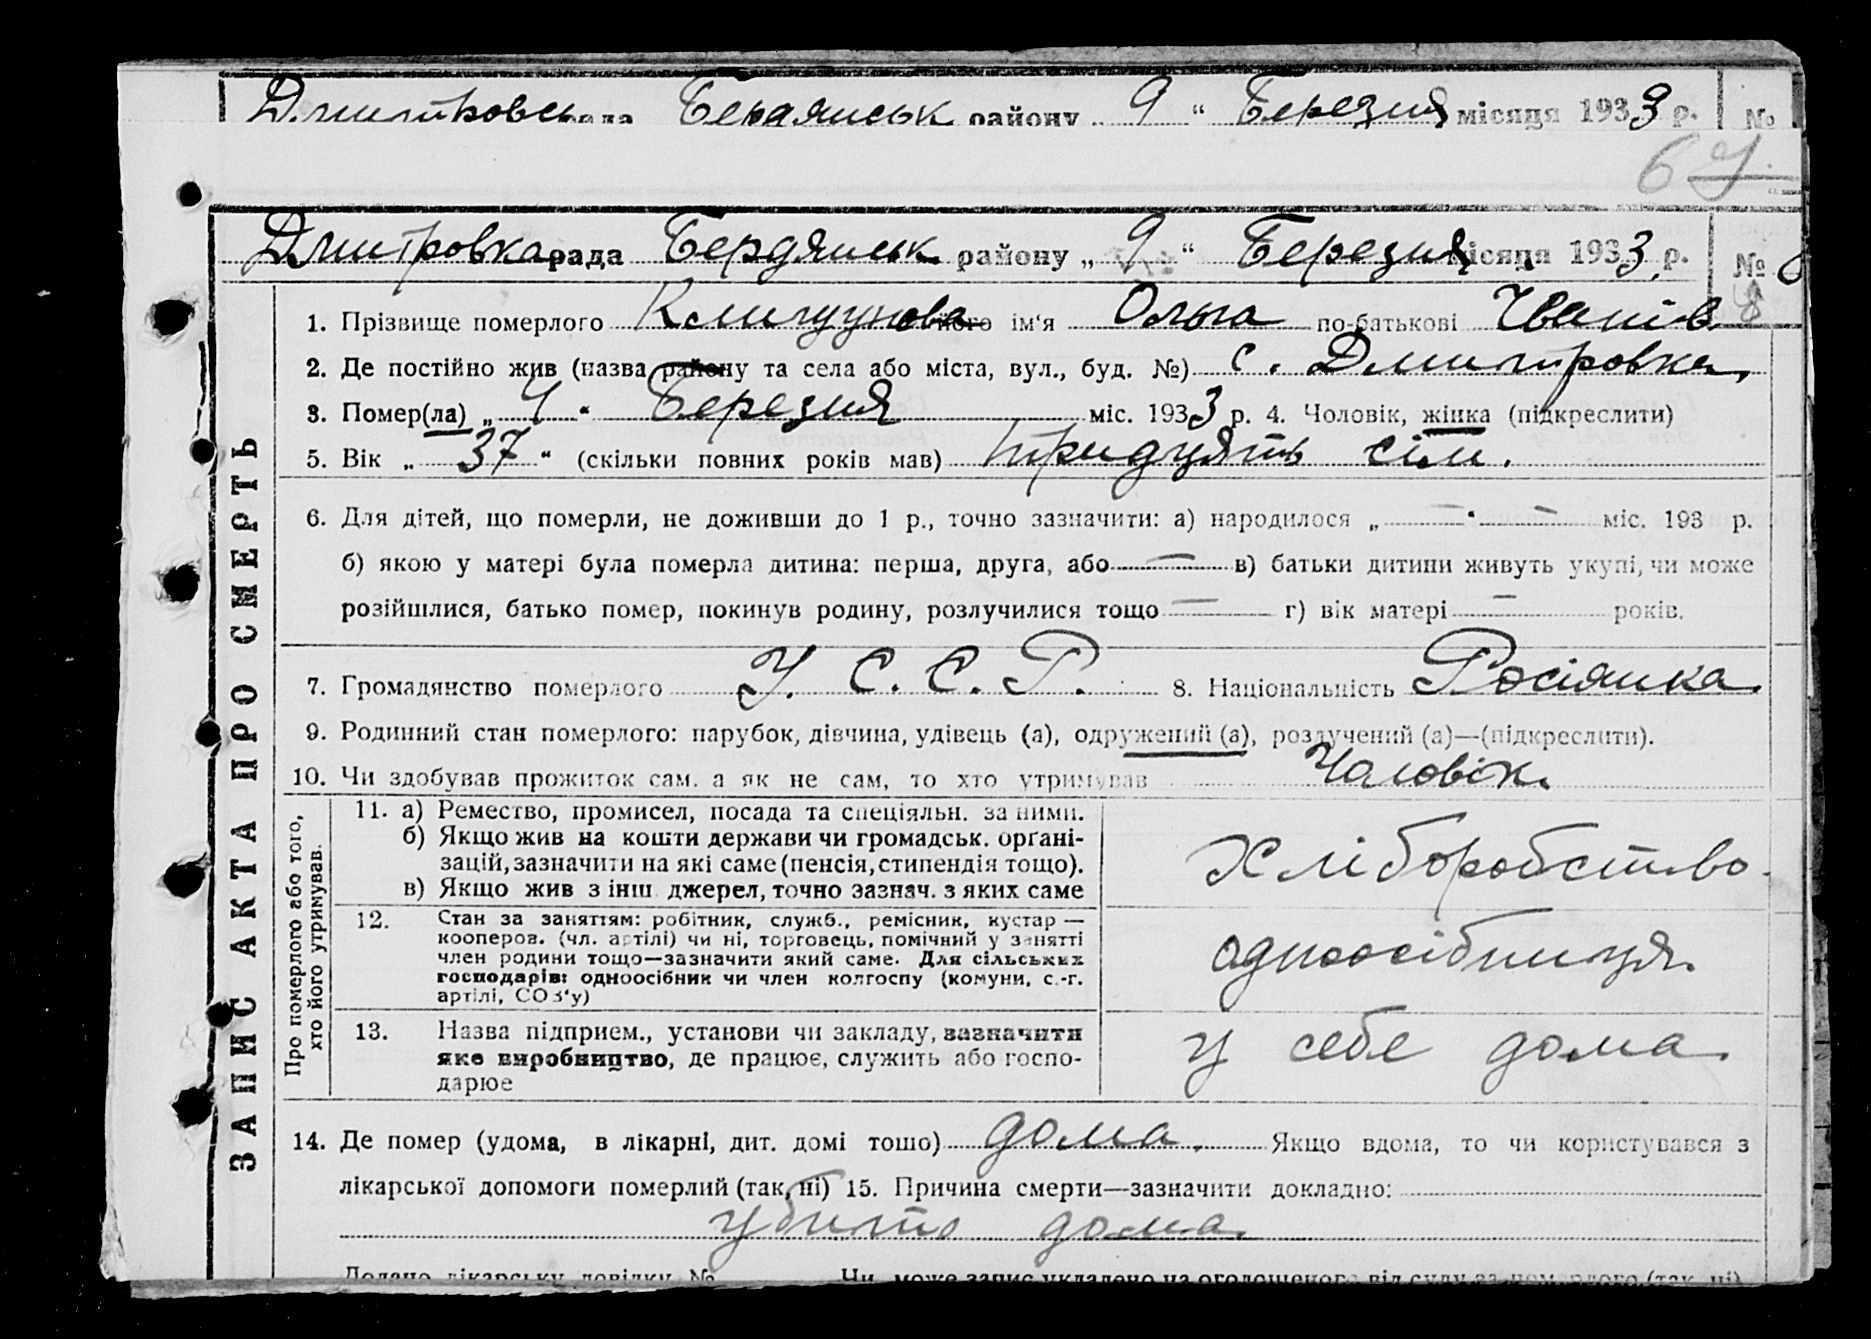 Дмитровсь рада Бердянськ району 9 “ Березня місяця 1933 р. №
67
Дмитровка рада Бердянськ району „ 9 “ Березня місяця 1933 р. №
1. Прізвище померлого його ім‘я Ольга по-батькові Іванів
2. Де постійно жив (назва району та села або міста, вул., буд. №) с. Дмитровка
3. Помер(ла) „ 4 “ Березня міс. 1933 р. 4. Чоловік, жінка (підкреслити)
5. Вік „ 37 “ (скільки повних років мав) тридцять сім.
6. Для дітей, що померли, не доживши до 1 р., точно зазначити: а) народилося „ — “ — міс. 193 р.
б) якою у матері була померла дитина: перша, друга, або — в) батьки дитини живуть укупі, чи може
розійшлися, батько помер, покинув родину, розлучилися тощо — г) вік матері — років.
7. Громадянство померлого У. С. С. Р. 8. Національність Росіянка.
9. Родинний стан померлого: парубок, дівчина, удівець (а), одружений (а), розлучений (а)—(підкреслити).
10. Чи здобував прожиток сам. а як не сам, то хто утримував Чоловік.
ЗАПИС АКТА ПРО СМЕРТЬ
Про померлого або того,
хто його утримував.
11. а) Ремество, промисел, посада та спеціяльн. за ними.
б) Якщо жив на кошти держави чи громадськ. орґані-
зацій, зазначити на які саме (пенсія, стипендія тощо).
в) Якщо жив з інш. джерел, точно зазнач. з яких саме
Хліборобство.
12. Стан за заняттям: робітник, служб., ремісник, кустар —
кооперов. (чл. артілі) чи ні, торговець, помічний у занятті
член родини тощо—зазначити який саме. Для сільських
господарів: одноосібник чи член колгоспу (комуни, с.-г.
артілі, СОЗ‘у)
одноосібниця.
13. Назва підприєм., установи чи закладу, зазначити
яке виробництво, де працює, служить або госпо-
дарює
у себе дома.
14. Де помер (удома, в лікарні, дит. домі тошо) дома. Якщо вдома, то чи користувався з
лікарської допомоги померлий (так, ні) 15. Причина смерти—зазначити докладно:
убито дома.
Додано лікарську довідку № Чи може запис укладено на оголошеного від суду за померлого (так, ні)